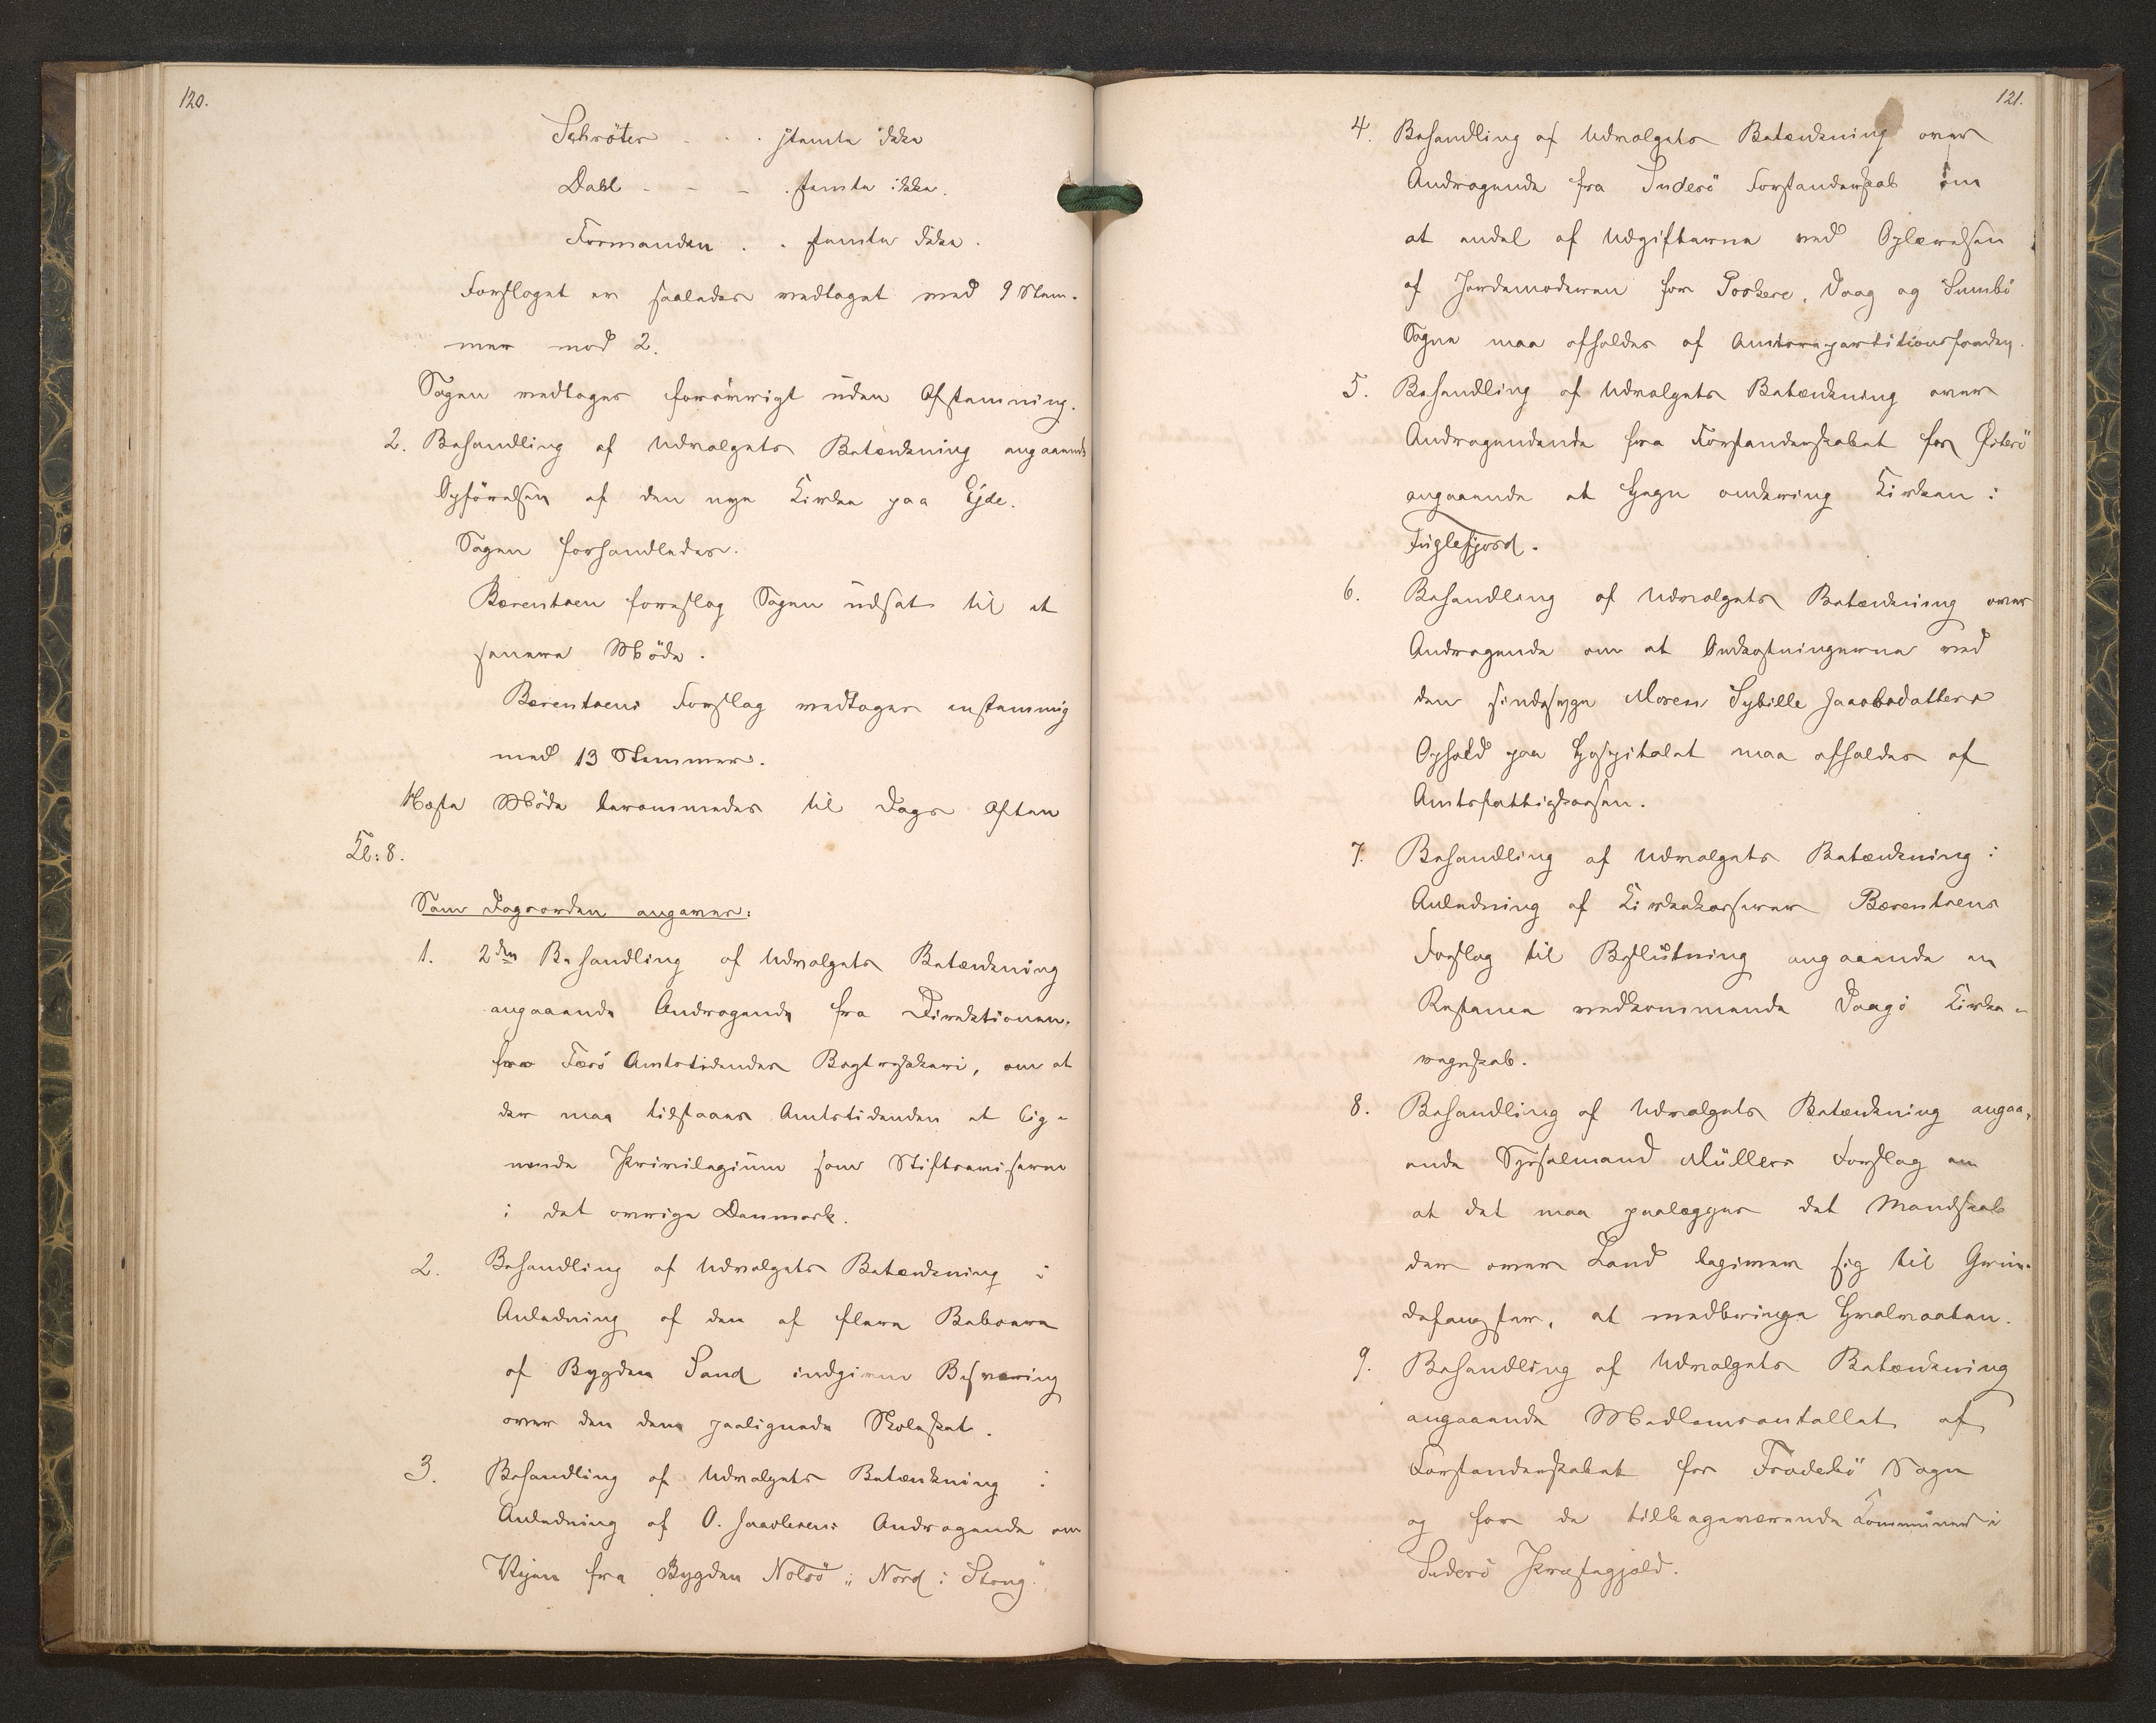 120.
Schröter - - . stemte ikke
Dahl - - - . stemte ikke.
Formanden . . stemte ikke.
Forslaget er saaledes vedtaget med 9 Stem-
mer mod 2.
Sagen vedtoges forövrigt uden Afstemning.
2. Behandling af Udvalgets Betænkning angaaende
Opförelsen af den nye Kirke paa Ejde.
Sagen forhandledes.
Bærentsen foreslog Sagen udsat til et
senere Möde.
Bærentsens Forslag vedtoges enstemmig
med 13 Stemmer.
Næste Möde berammedes til Dags Aften
Kl: 8.
Som Dagsorden angaves:
1. 2den Behandling af Udvalgets Betænkning
angaaende Andragende fra Direktionen
for Færö Amtstidendes Bogtrykkeri, om at
der maa tilstaaes Amtstidenden et lig-
nende Privilegium som Stiftsaviserne
i det övrige Danmark.
2. Behandling af Udvalgets Betænkning i
Anledning af den af flere Beboere
af Bygden Sand indgivne Besværing
over den dem paalignede Skoleskat.
3. Behandling af Udvalgets Betænkning i
Anledning af O. Joensens Andragende om
Vejen fra Bygden Nolsö "Nord i Stong".
121.
4. Behandling af Udvalgets Betænkning over
Andragende fra Suderö Forstanderskab om
at endel af Udgifterne ved Oplærelsen
af Jordemoderen for Porkere, Vaag og Sumbö
Sogne maa afholdes af Amtsrepartitionsfonden.
5. Behandling af Udvalgets Betænkning over
Andragendende fra Forstanderskabet for Österö
angaaende et Hegn omkring Kirken i
Fuglefjord.
6. Behandling af Udvalgets Betænkning over
Andragende om at Omkostningerne ved
den sindssyge Maren Sybille Jacobsdatters
Ophold paa Hospitalet maa afholdes af
Amtsfattigkassen.
7. Behandling af Udvalgets Betænkning i
Anledning af Kirkekasserer Bærentsens
Forslag til Beslutning angaaende en
Restance vedkommende Vaagö Kirke-
regnskab.
8. Behandling af Udvalgets Betænkning angaa-
ende Sysselmand Müllers Forslag om
at det maa paalægges det Mandskab
der over Land begiver sig til Grin-
defangster, at medbringe Hvalvaaben.
9. Behandling af Udvalgets Betænkning
angaaende Medlemsantallet af
Forstanderskabet for Frodebö Sogn
og for de tilbageværende Kommuner i
Suderö Præstegjæld.